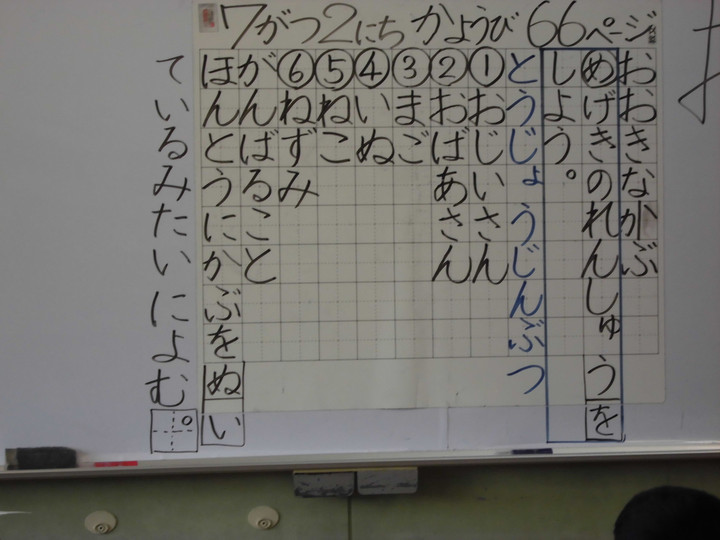 7がつ2にち かようび 66ページ
おおきなかぶ
めげきのれんしゅうを
しよう。
とうじょうじんぶつ
①おじいさん
②おばあさん
③まご
④いぬ
⑤ねこ
⑥ねずみ
がんばること
ほんとうにかぶをぬい
ているみたいによむ。